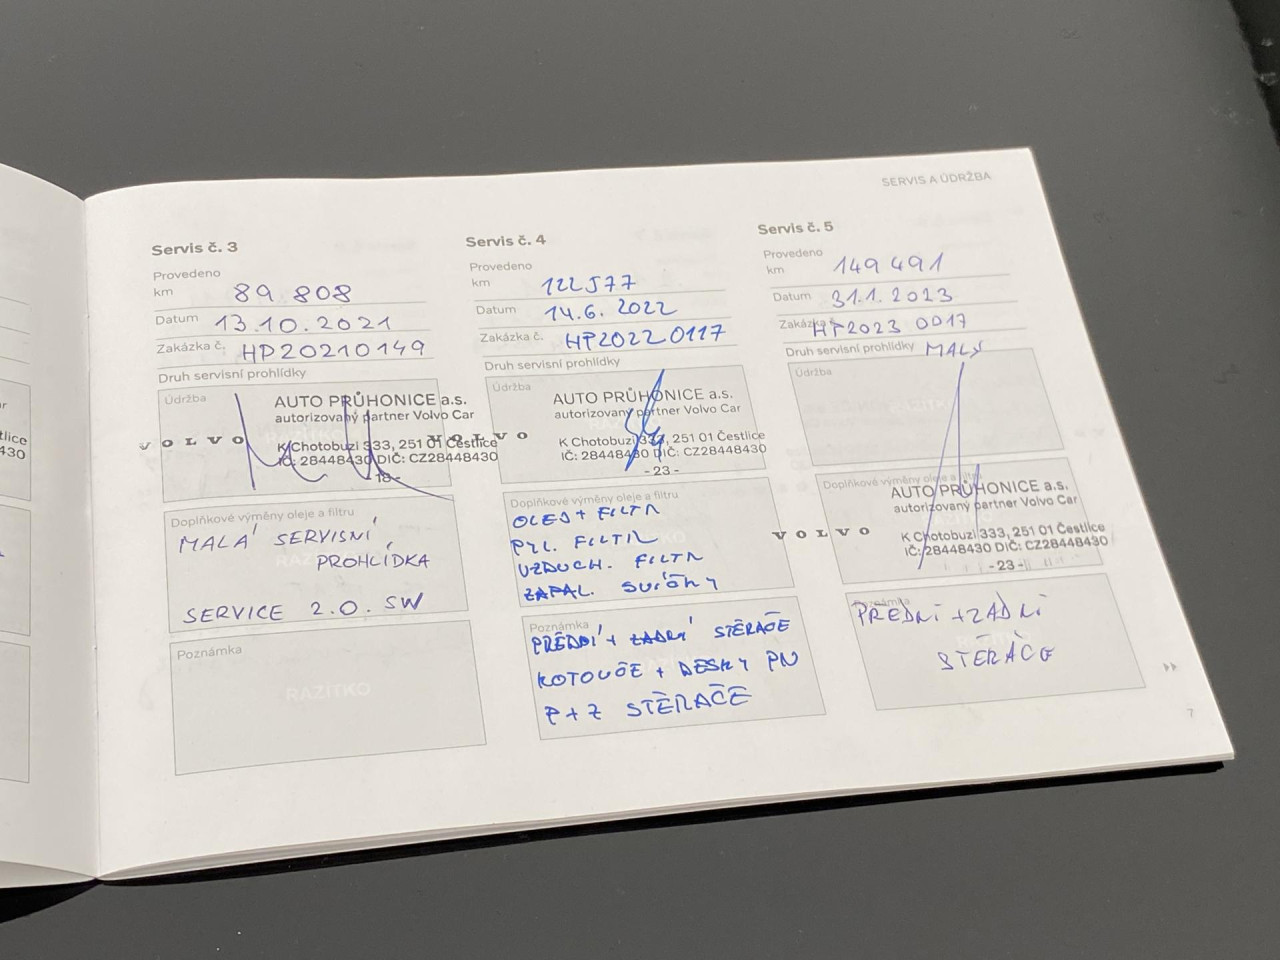 SERVIS A ÚDRŽBA
Servis č. 3
Provedeno
km 89 808
Datum 13.10.2021
Zakázka č. HP20210149
Druh servisní prohlídky
Údržba
AUTO PRŮHONICE a.s.
autorizovaný partner Volvo Car
VOLVO
K Chotobuzi 333, 251 01 Čestlice
IČ: 28448430 DIČ: CZ28448430
-18-
Doplňkové výměny oleje a filtru
MALÁ SERVISNÍ
PROHLÍDKA
SERVICE 2.0. SW
Poznámka
RAZÍTKO
Servis č. 4
Provedeno
km 122577
Datum 14.6.2022
Zakázka č. HP2022 0117
Druh servisní prohlídky
Údržba
AUTO PRŮHONICE a.s.
autorizovaný partner Volvo Car
VOLVO
K Chotobuzi 333, 251 01 Čestlice
IČ: 28448430 DIČ: CZ28448430
-23-
Doplňkové výměny oleje a filtru
OLEJ + FILTR
PYL. FILTR
VZDUCH. FILTR
ZAPAL. SVÍČKY
Poznámka
PŘEDNÍ + ZADNÍ STĚRAČE
KOTOUČE + DESKY PN
P+Z STĚRAČE
Servis č. 5
Provedeno
km 149 491
Datum 31.1.2023
Zakázka č. HP2023 0017
Druh servisní prohlídky MALÝ
Údržba
Doplňkové výměny oleje a filtru
AUTO PRŮHONICE a.s.
autorizovaný partner Volvo Car
VOLVO
K Chotobuzi 333, 251 01 Čestlice
IČ: 28448430 DIČ: CZ28448430
-23-
Poznámka
PŘEDNÍ + ZADNÍ
STĚRAČE
7